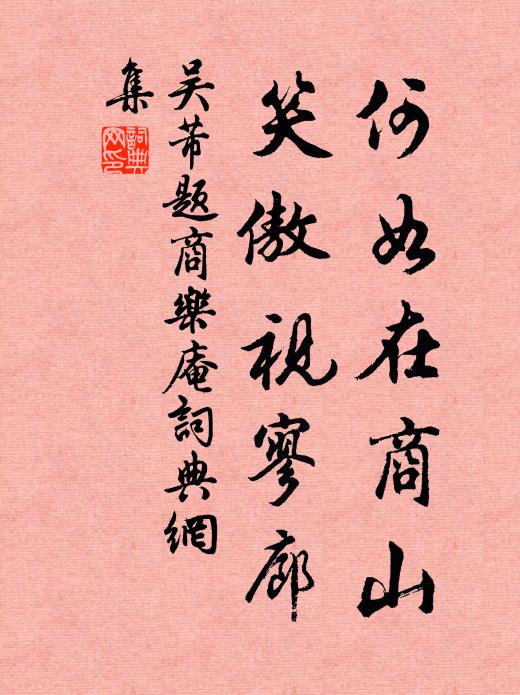 何如在商山
笑傲視寥廓
吳芾題商樂庵詞典網
集
詞典網印